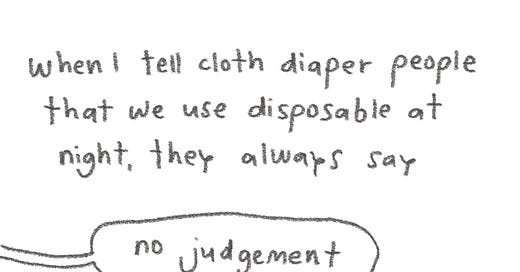 when I tell cloth diaper people
that we use disposable at
night, they always say
no judgement